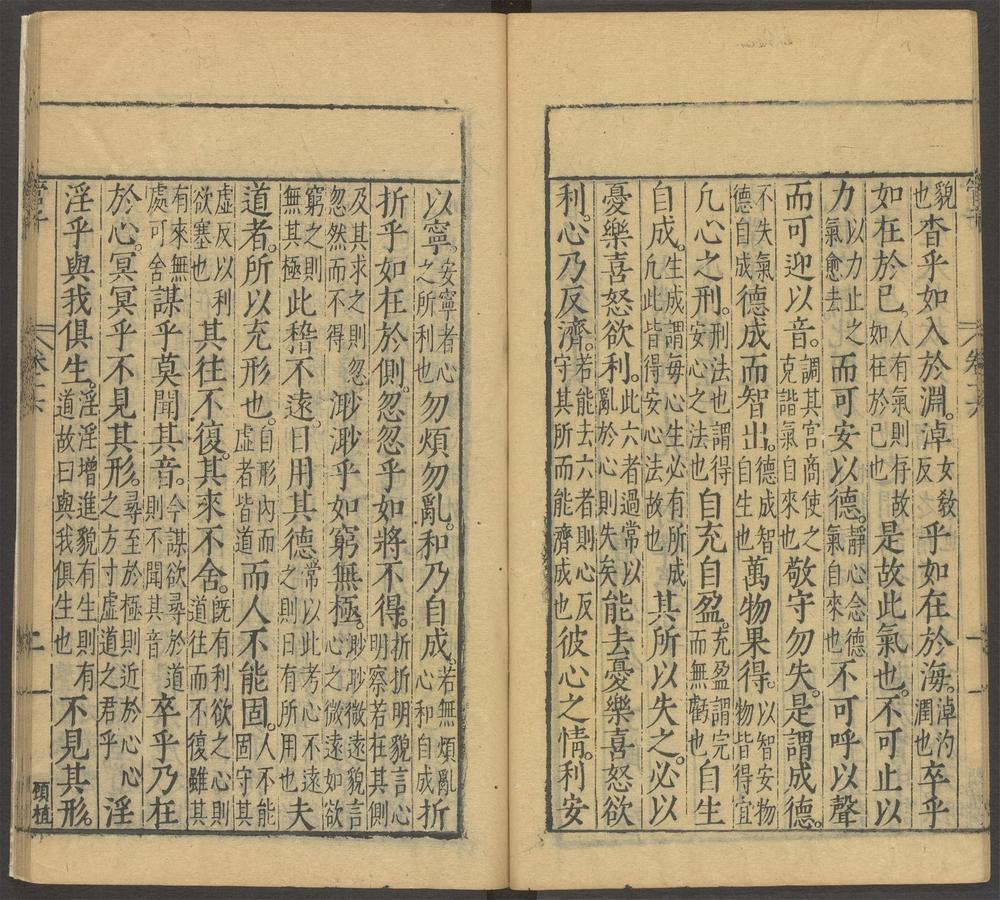 管子
卷十六
貌也杳乎如入於淵。淖女敎反乎如在於海。淖汋潤也卒乎
如在於已。人有氣則存故如在於已也是故此氣也。不可止以
力以力止之氣愈去而可安以德。靜心念德氣自來也不可呼以聲
而可迎以音。調其宮商使之克諧氣自來也敬守勿失。是謂成德。
不失氣德自成德成而智出。德成智自生也萬物果得。以智安物物皆得宜
凡心之刑。刑法也謂得安心之法也自充自盈。充盈謂完而無虧也自生
自成。生成謂毎心生必有所成凡此皆得安心法故也其所以失之。必以
憂樂喜怒欲利。此六者過常以亂於心則失矣能去憂樂喜怒欲
利。心乃反濟。若能去六者則心反守其所而能濟成也彼心之情。利安
以寧。安寧者心之所利也勿煩勿亂。和乃自成。若無煩亂心和自成折
折乎如在於側。忽忽乎如將不得。折折明貌言心明察若在其側
及其求之則忽忽然而不得渺渺乎如窮無極。渺渺微遠貌言心之微遠如欲
窮之則無其極此稽不遠。日用其德常以此考心不遠之則日有所用也夫
道者。所以充形也。自形內而虛者皆道而人不能固。人不能固守其
虛反以利欲塞也其往不復。其來不舍。旣有利欲之心則道往而不復雖其
有來無處可舍謀乎莫聞其音。今謀欲尋於道則不聞其音卒乎乃在
於心。冥冥乎不見其形。尋至於極則近於心心之方寸虛道之君乎淫
淫乎與我俱生。淫淫增進貌有生則有道故曰與我俱生也不見其形。
管子
卷十六
二
顧植